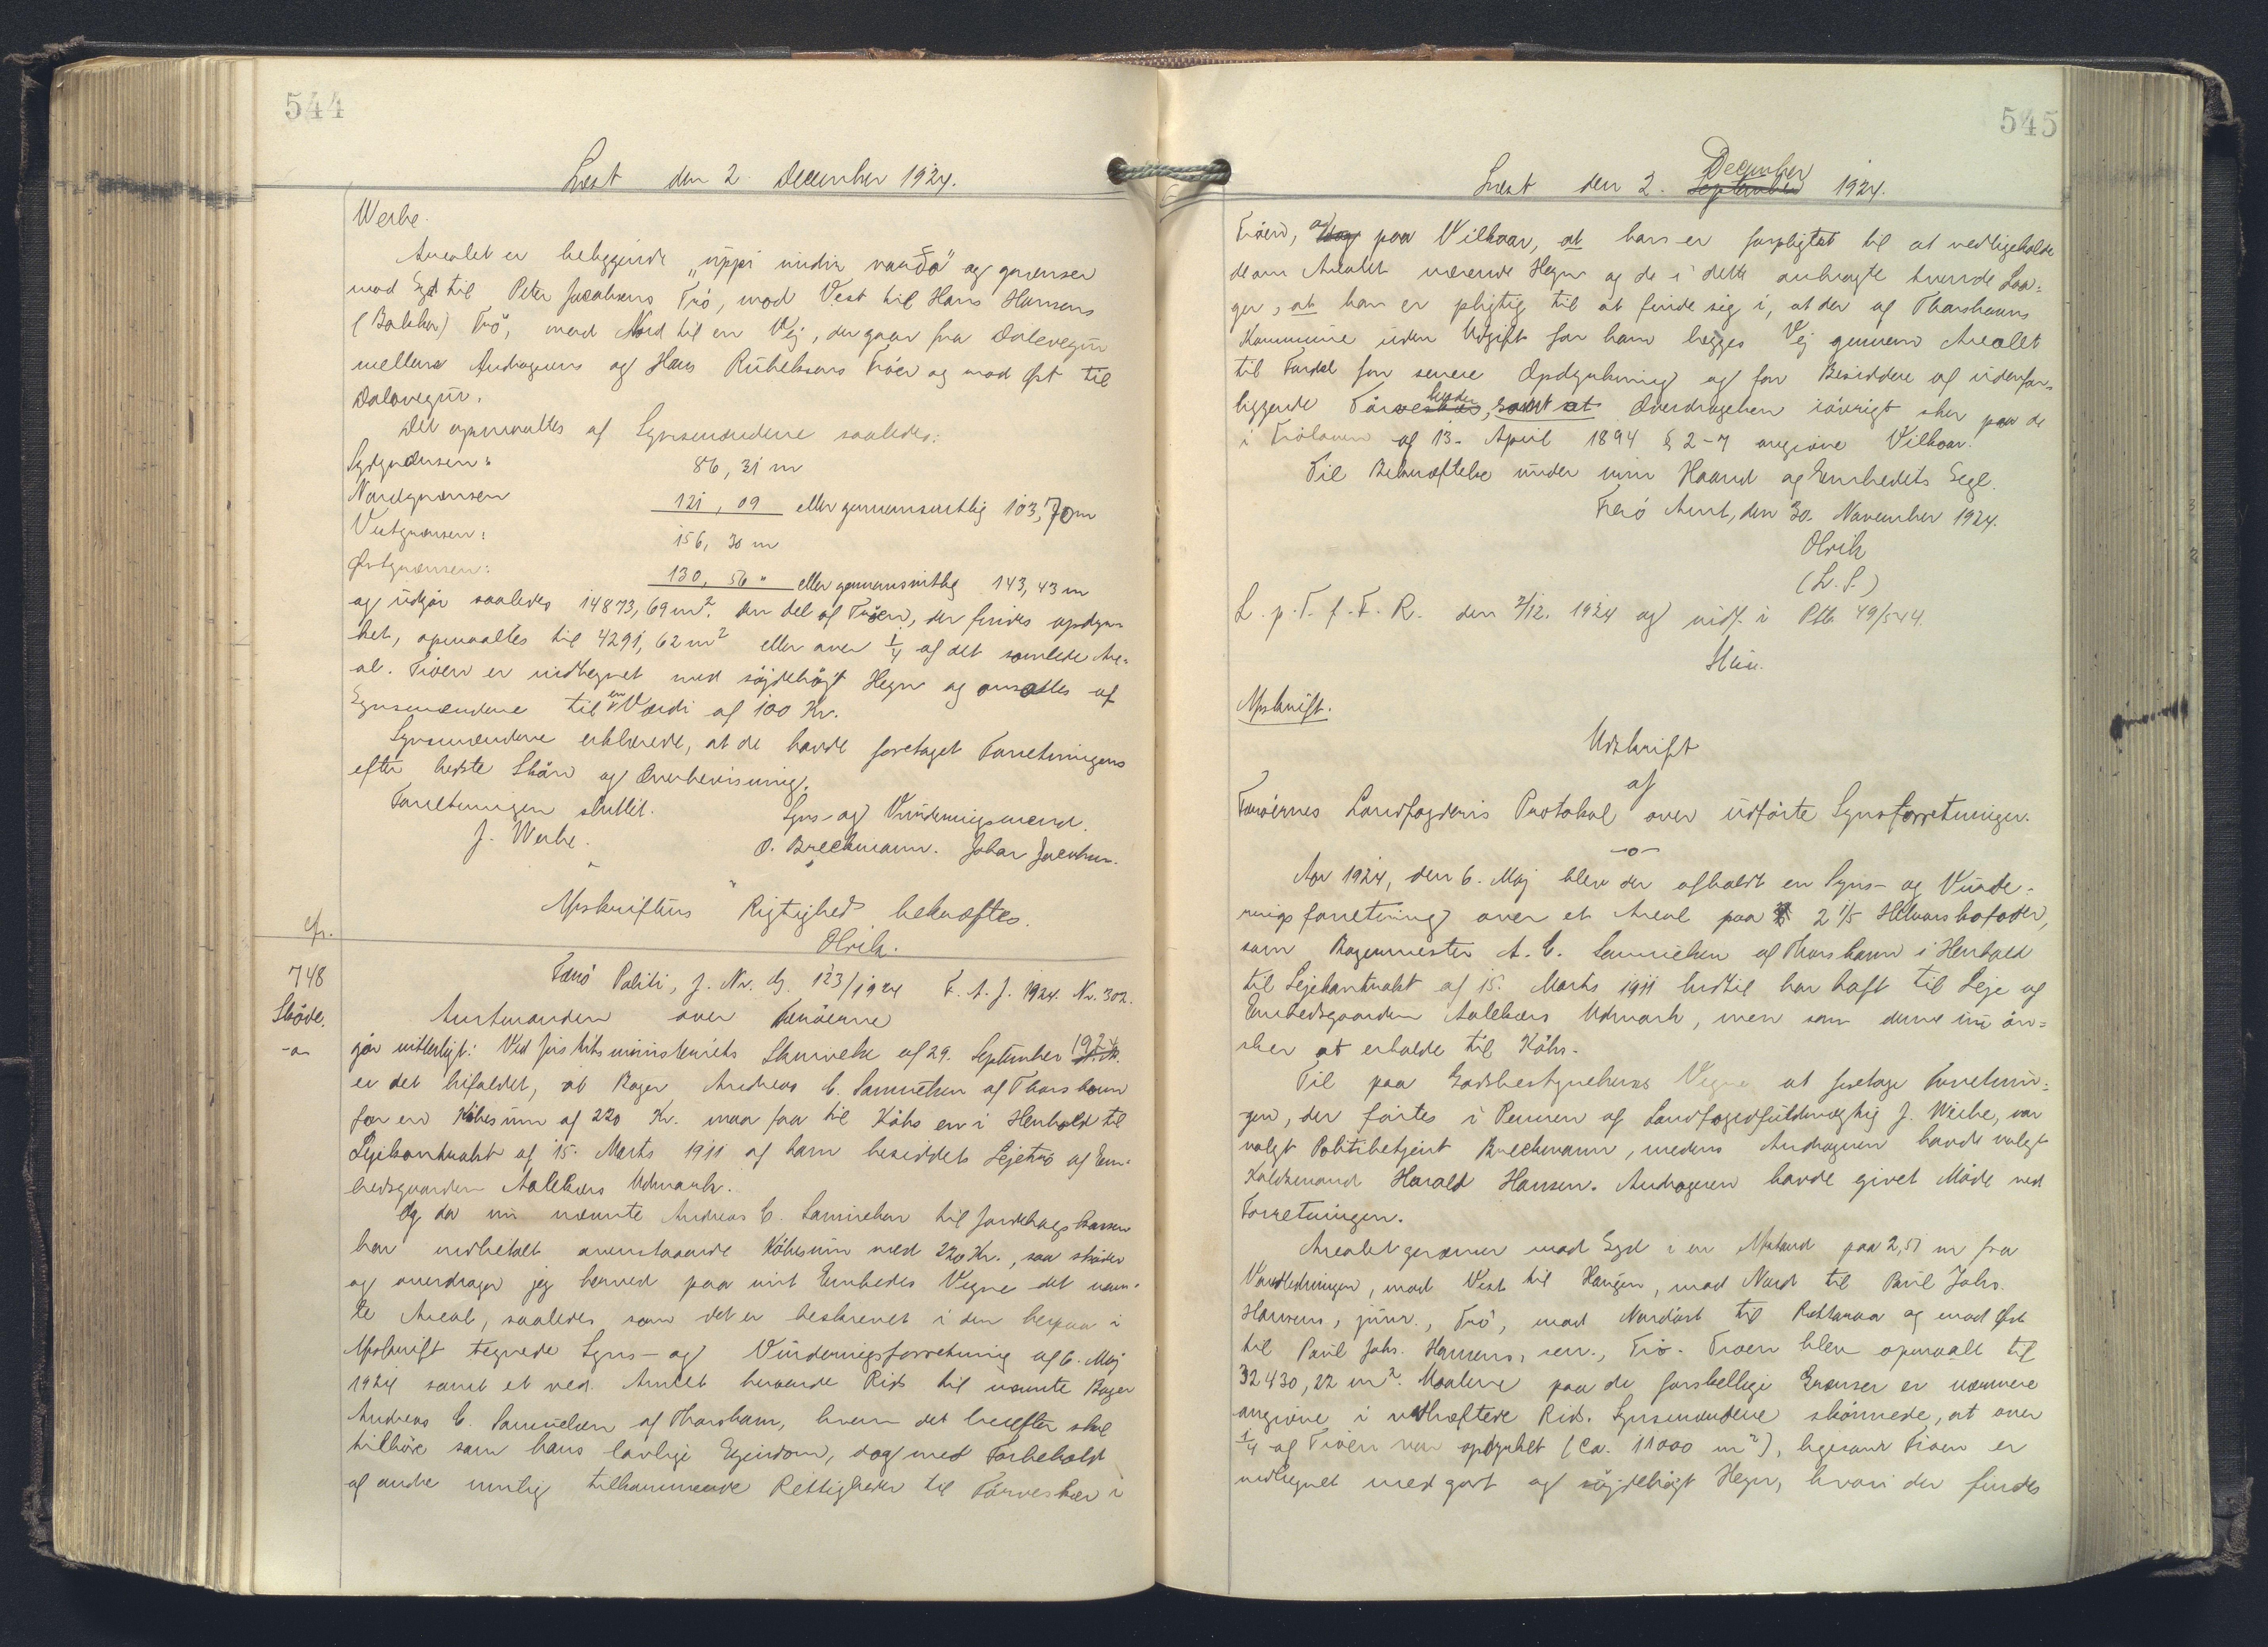 544
Læst den 2. December 1924.
Werbe.
Arealet er beliggende „uppi undir varða" og grænser
mod Syd til Peter Jacobsens Trö, mod Vest til Hans Hansens
(Bakka) Trö, mod Nord til en Vej, der gaar fra Dalavegur
mellem Andragerens og Hans Rubeksens Tröer og mod Øst til
Dalavegur.
Det opmaaltes af Synsmændene saaledes:
Sydgrænsen: 86,31 m
Nordgrænsen 121,09 eller gennemsnitlig 103,70 m
Vestgrænsen: 156,30 m
Østgrænsen: 130,56 " eller gennemsnitlig 143,43 m
og udgör saaledes 14873,69 m². Den del af Tröen, der findes opdyr-
ket, opmaaltes til 4291,62 m² eller over 1/4 af det samlede Are-
al. Tröen er indhegnet med söjdehögt Hegn og ansættes af
Synsmændene til en Værdi af 100 Kr.
Synsmændene erklærede, at de havde foretaget Forretningen
efter bedste Skön og Overbevisning.
Forretningen sluttet. Syns- og Vurderingsmænd.
J. Werbe. O. Breckmann. Johan Jacobsen.
Afskriftens Rigtighed bekræftes.
Olrik.
748
Sköde.
Færö Politi, J. Nr. dj. 123/1924 F. A. J. 1924. Nr. 302.
Amtmanden over Færöerne
gör vitterligt: Ved Justitsministeriets Skrivelse af 29. September 1924
er det bifaldet, at Bager Andreas C. Samuelsen af Thorshavn
for en Köbesum af 220 Kr. maa faa til Köbs en i Henhold til
Lejekontrakt af 15. Marts 1911 af ham besiddet Lejetrö af Em-
bedsgaarden Aalekærs Udmark.
Og da nu nævnte Andreas C. Samuelsen til Jordebogskassen
har indbetalt ovenstaaende Köbesum med 220 Kr., saa sköder
og overdrager jeg herved paa mit Embedes Vegne det nævn-
te Areal, saaledes som det er beskrevet i den herpaa i
Afskrift tegnede Syns- og Vurderingsforretning af 6. Maj
1924 samt et ved Amtet beroende Rids til nævnte Bager
Andreas C. Samuelsen af Thorshavn, hvem det herefter skal
tilhöre som hans lovlige Ejendom, dog med Forbehold
af andre mulig tilkommende Rettigheder til Törveskær i
545
Læst den 2. September December 1924.
Tröen, og paa Vilkaar, at han er forpligtet til at vedligeholde
de om Arealet værende Hegn og de i dette anbragte tvende Laa-
ger, at han er pligtig til at finde sig i, at der af Thorshavns
Kommune uden Udgift for ham lægges Vej gennem Arealet
til Fordel for senere Opdyrkning og for Besiddere af udenfor-
liggende Törveskær, samt at Overdragelsen iövrigt sker paa de
i Trölaven af 13. April 1894 § 2-7 angivne Vilkaar.
Til Bekræftelse under min Haand og Embedets Segl.
Færö Amt, den 30. November 1924.
Olrik
(L. S.)
L. p. T. f. F. R. den 2/12. 1924 og indf. i Ptk. 49/544.
Afskrift.
Udskrift
af
Færöernes Landfogderis Protokol over udförte Synsforretninger.
-o-
Aar 1924, den 6. Maj blev der afholdt en Syns- og Vurde-
ringsforretning over et Areal paa 2 1/5
som Bagermester A. C. Samuelsen af Thorshavn i Henhold
til Lejekontrakt af 15. Marts 1911 hidtil har haft til Leje af
Embedsgaarden Aalekærs Udmark, men som denne nu ön-
sker at erholde til Köbs.
Til paa Godsbestyrelsens Vegne at foretage Forretnin-
gen, der förtes i Pennen af Landfogedfuldmægtig J. Werbe, var
valgt Politibetjent Breckmann, medens Andrageren havde valgt
Harald Hansen. Andrageren havde givet Möde ved
Forretningen.
Arealet grænser mod Syd i en Afstand paa 2,51 m fra
Vandledningen, mod Vest til Haugen, mod Nord til Paul Johs.
Hansens, junr., Trö, mod Nordöst til og mod Øst
til Paul Johs. Hansens, sen., Trö. Tröen blev opmaalt til
32430,22 m². Maalene paa de forskellige Grænser er nærmere
angivne i vedhæftede Rids. Synsmændene skönnede, at over
1/4 af Tröen var opdyrket (ca. 11000 m²), ligesom Tröen er
indhegnet med godt og söjdehögt Hegn, hvori der findes